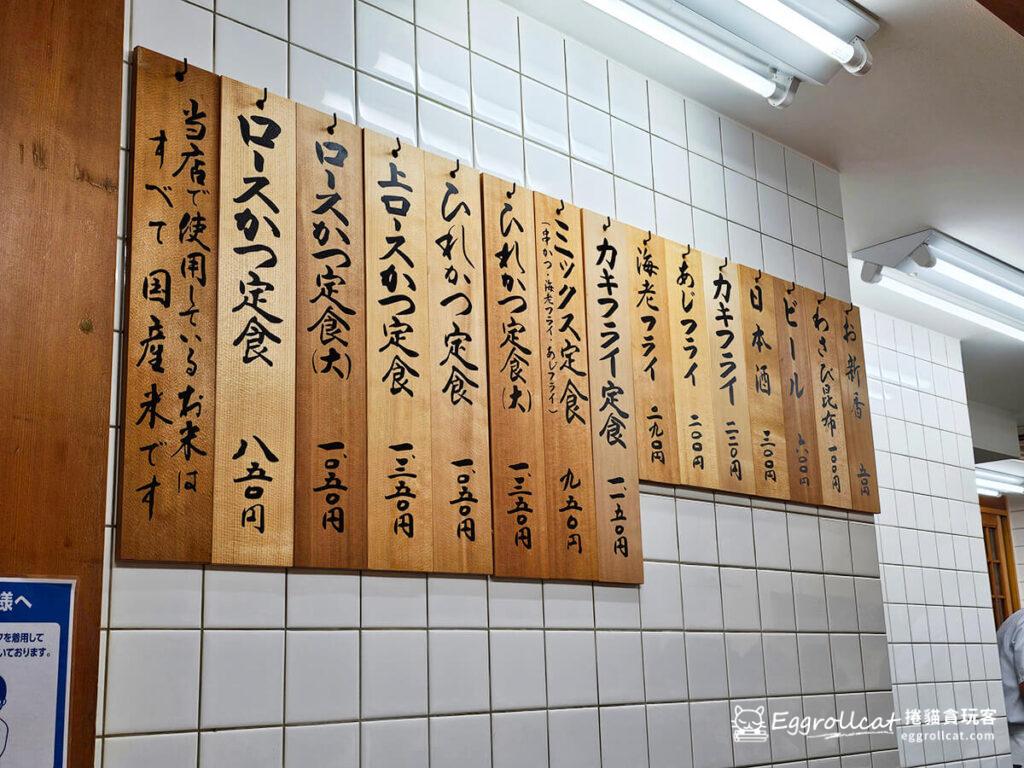 当店で使用しているお米は
すべて国産米です
ロースかつ定食 八五〇円
ロースかつ定食(大) 一、〇五〇円
上ロースかつ定食 一、三五〇円
ひれかつ定食 一、〇五〇円
ひれかつ定食(大) 一、三五〇円
ミックス定食 九五〇円
(串かつ・海老フライ・あじフライ)
カキフライ定食 一、一五〇円
海老フライ 二九〇円
あじフライ 二〇〇円
カキフライ 二二〇円
日本酒 三〇〇円
ビール 六〇〇円
わさび昆布 一〇〇円
お新香
様へ
を着用して
いております。
Eggrollcat 捲貓貪玩客
eggrollcat.com